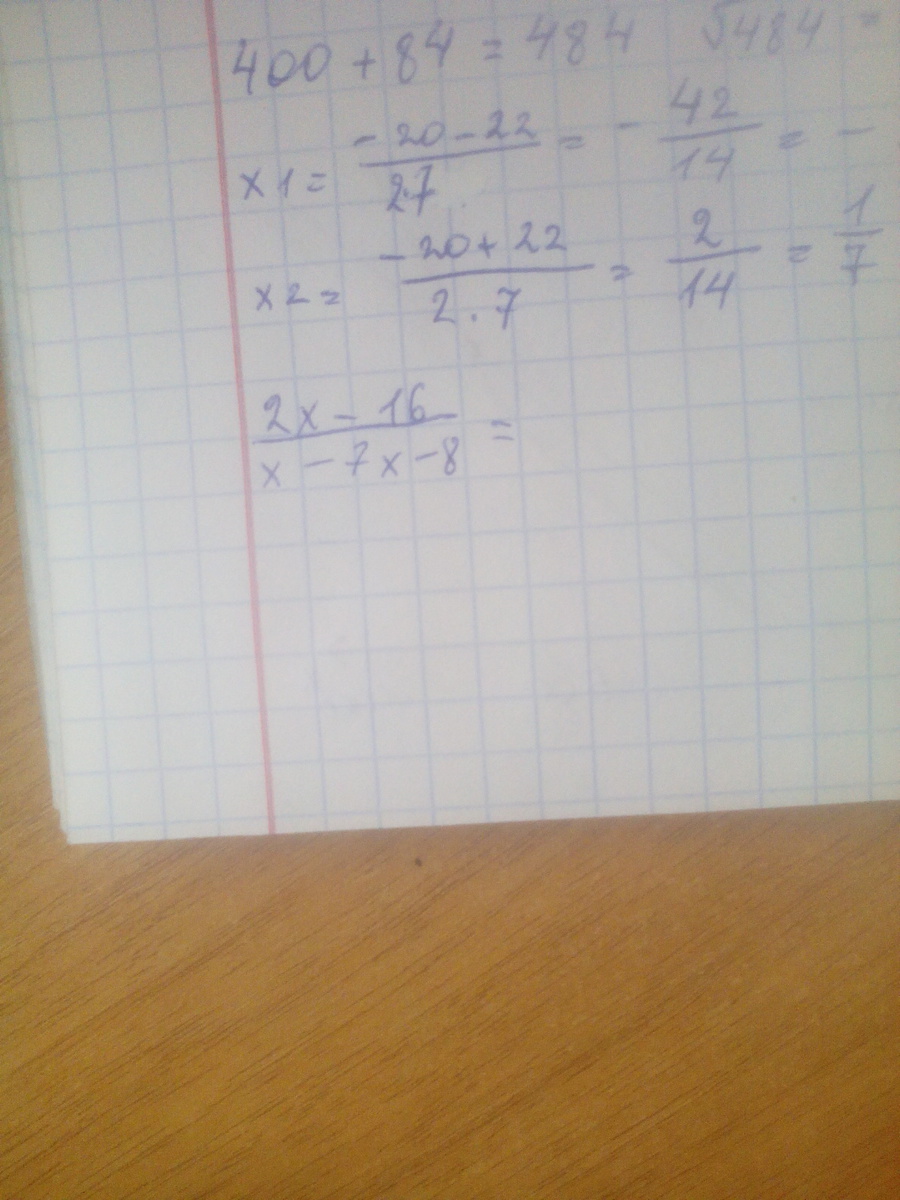 400 + 84 = 484 √484 =
x1 = -20-22/2·7 = - 42/14 = -
x2 = -20+22/2·7 = 2/14 = 1/7
2x - 16/x - 7x - 8 =